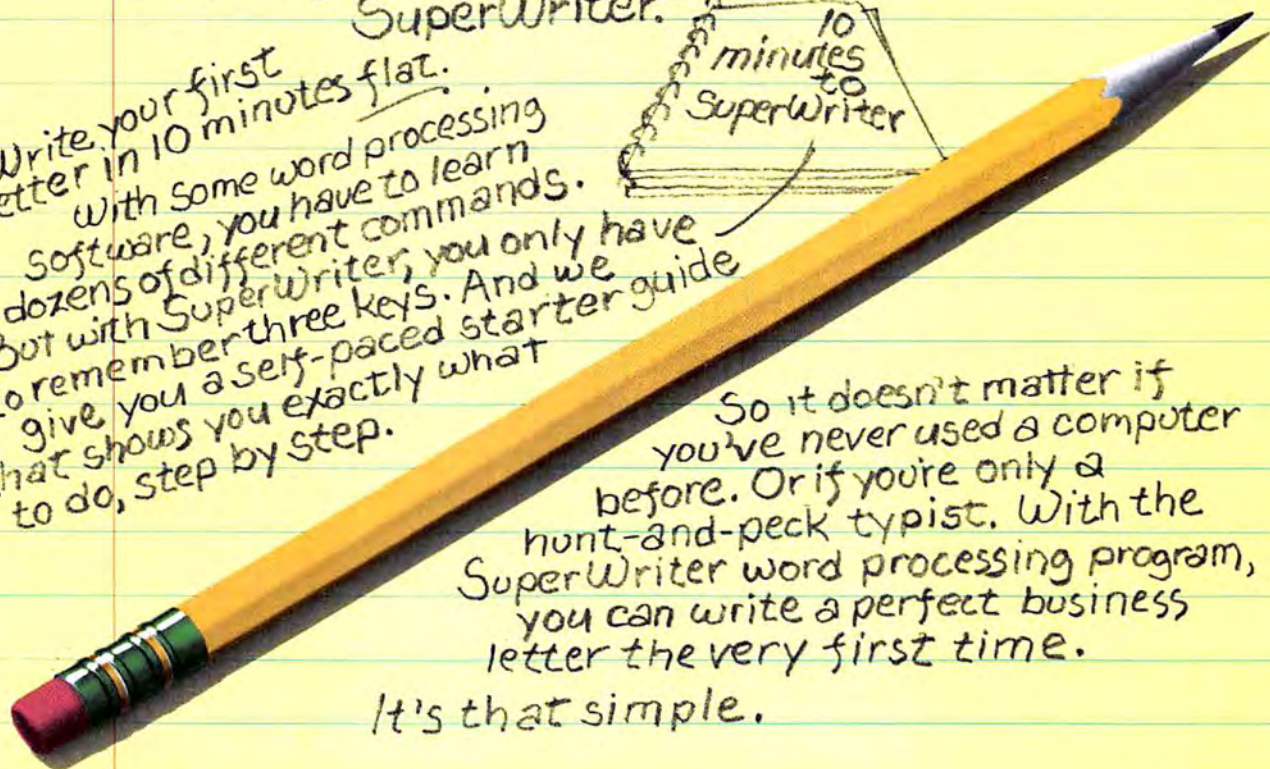 SuperWriter.
Write your first
etter in 10 minutes flat.
With some word processing
software, you have to learn
dozens of different commands.
But with SuperWriter, you only have
to remember three keys. And we
give you a self-paced starter guide
hat shows you exactly what
to do, step by step.
10
minutes
to
SuperWriter
So it doesn't matter if
you've never used a computer
before. Or if you're only a
hunt-and-peck typist. With the
SuperWriter word processing program,
you can write a perfect business
letter the very first time.
It's that simple.